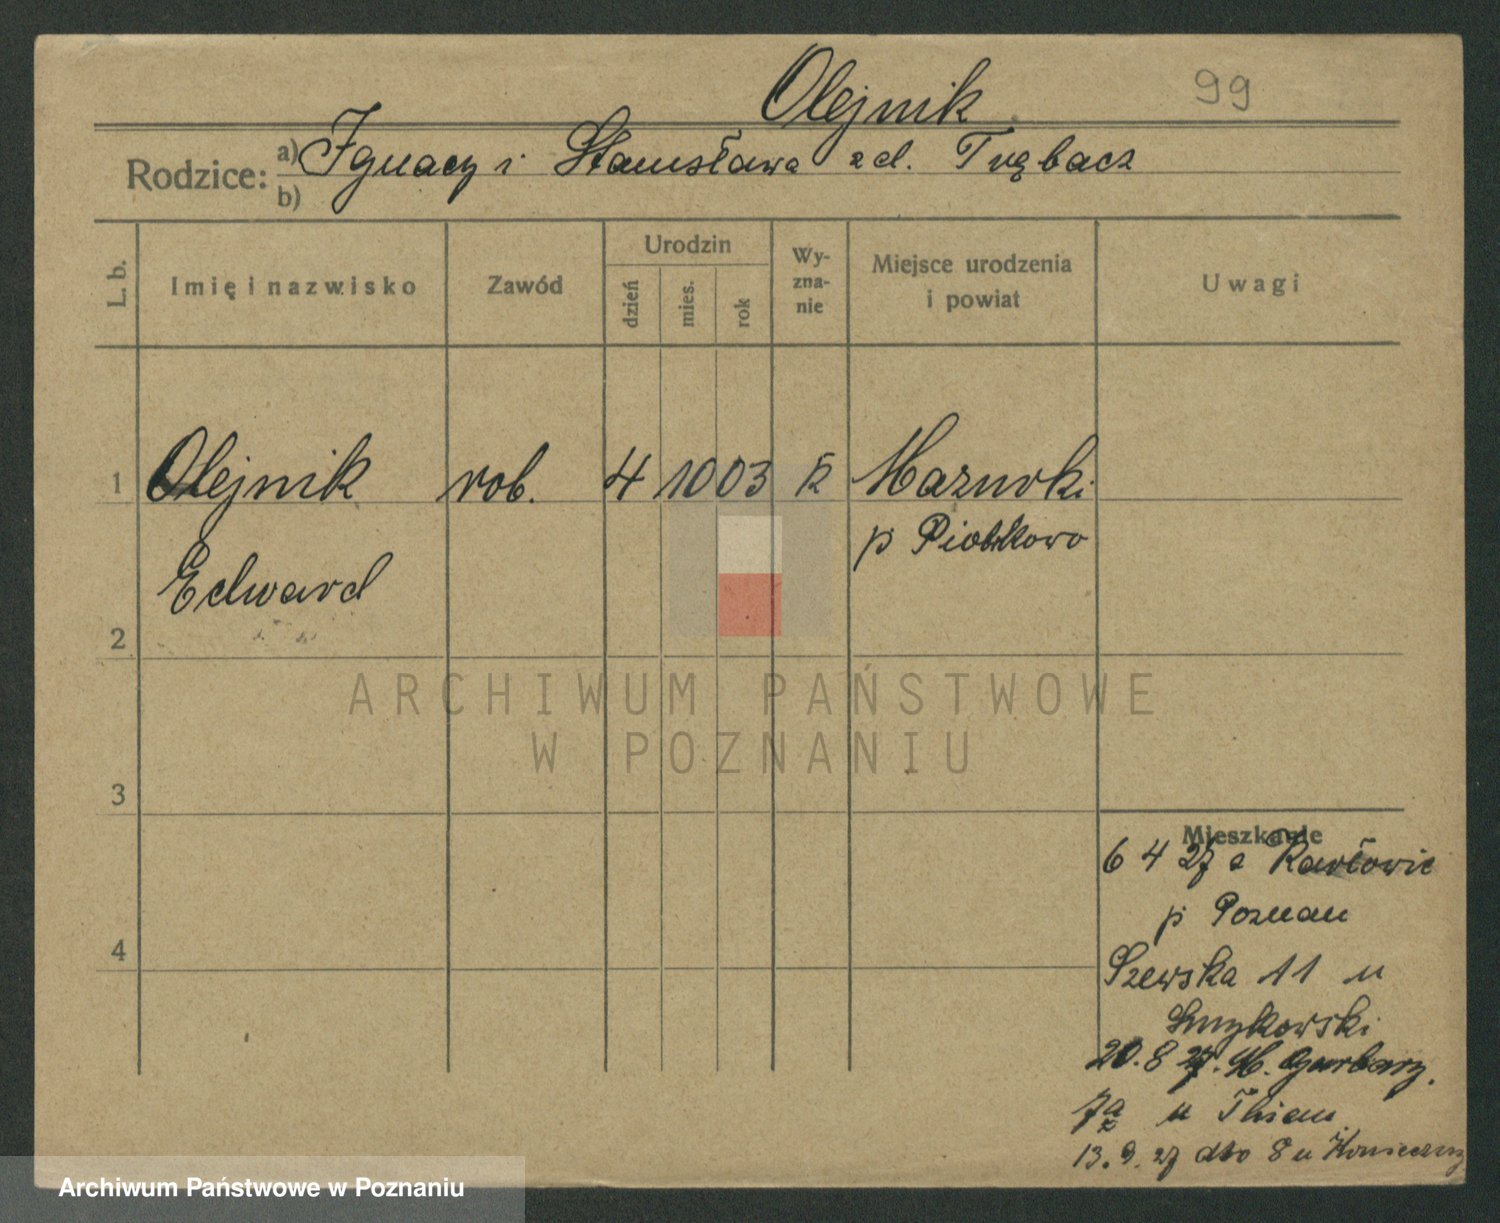 Olejnik 99
Rodzice: a) Ignacy i Stanisława zd. Trębacz
b)
L. b. Imię i nazwisko Zawód Urodzin dzień mies. rok Wyznanie Miejsce urodzenia i powiat Uwagi
1 Olejnik rob. 4 10 03 k Mazurki
p Piotrkowo
Edward
2
ARCHIWUM PAŃSTWOWE
W POZNANIU
3
Mieszkanie
6 4 27 z
p Poznan
4
Szewska 11 u
Smykowski
20.8 27. W. Garbary.
7a u Thiem
13.9.27 dto 8 u Konieczny
Archiwum Państwowe w Poznaniu